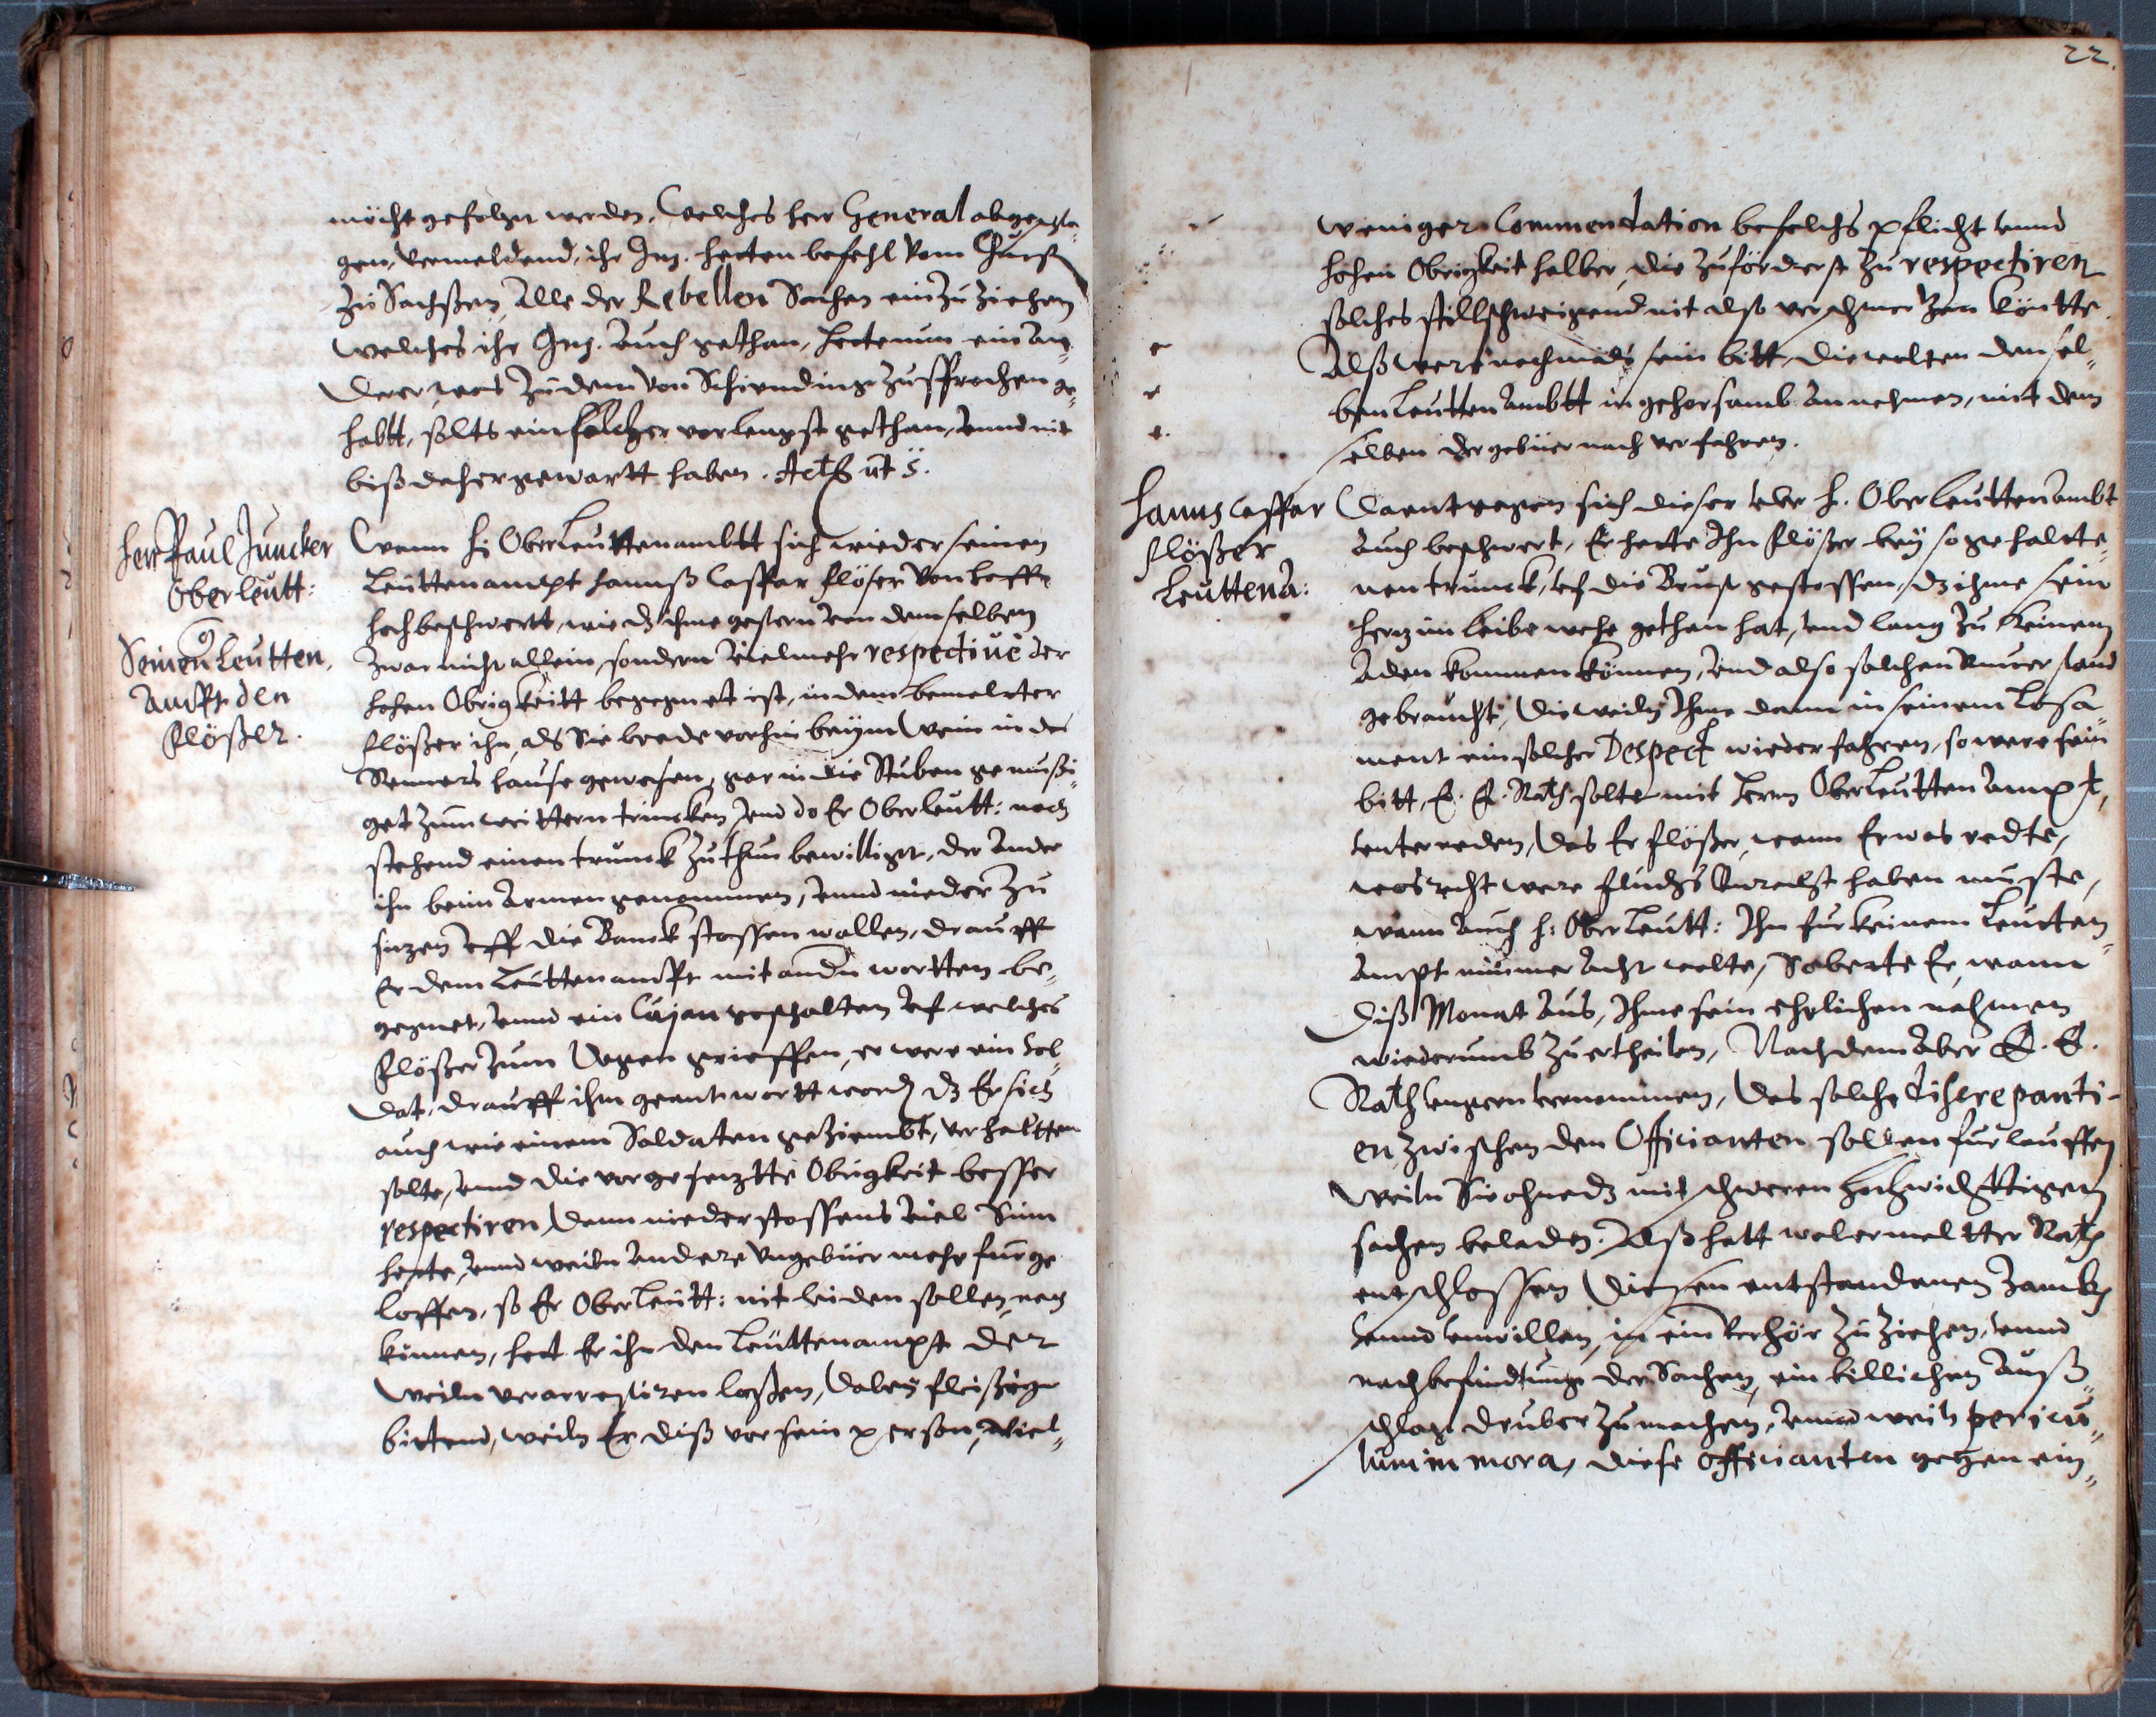 möcht gefolgt werden, Welches herr General abgeschla„
gen, vermeldend, ihr Gn. hetten befehl vom Churf.
Zu Sachßen, Alle der Rebellen Sachen einzuziehen
Welches ihr Gn. auch gethan, hette nun ein An„
derer was zu dem von Schirnding zusprechen ge„
habtt, solts ein solcher vorlengst gethan, unnd nit
biß daher gewartt haben. Actß ut s.
Herr Paul Juncker
Oberleutt:
Seinen Leutten„
ampt den
Flößer.
Wann H: OberLeuttenambtt sich wieder seinen
Leuttenampt Hannß Caspar Flößer von
hochbeschwertt, wie dz ihme gestern von demselben
zwar nicht allein, sondern vielmehr respective der
hohen Obrigkeitt begegnet ist, in dem bemelter
Flößer ihn, als Sie beede vorhin beym Wein in des
hause gewesen, gar in die Stuben genußi„
get zum weittern trincken, und do Er Oberleutt: noch
stehend einen trunck zu thun bewilliget, der Ander
ihn beim Armen genommen, unnd nieder zu
sizen uff die Banck stossen wollen, drauff
Er dem Leuttenampt mit andn wortten be„
gegnet, unnd ein Cujan gescholten, uf welches
Flößer zum Degen grieffen, er were ein Sol„
dat, drauff ihm geantwortt word, dz Er sich
auch wie einem Soldaten geziembt, verhaltten
solte, unnd die vorgesezte Obrigkeit besser
respectiren, dann niederstossens viel Sinn
hette, unnd weiln andere ungebüer mehr fürge
loffen, so Er OberLeutt: nit leiden sollen, noch
können, hett Er ihn den Leuttenampt der
weiln verarrestiren laßen, dabey fleißig
bittend, weiln Er diß vor sein person, viel„
22.
weniger Commendation befelchs pflicht unnd
hohen Obrigkeit halber, die zuförderst zu respectiren
solches stillschweigend nit also verschmerzen köntte.
Alß were nochmals sein bitt, die wolten densel„
ben Leutten Ambtt in gehorsamb annehmen, mit dem
selben der gebüer nach verfahren.
Hanns Caspar
Flößer
Leuttena:
Daentgegen sich dieser uber H. OberLeuttenambt
auch beschwert, Er hette Ihn Flößer bey so gehalte„
nen trunck, uf die Brust gestossen, dz ihme sein
herz im leibe wehe gethan hat, und lang zu keinem
Aden kommen können, und also solchen
gebraucht, Dieweiln Ihme dann in seinem Losa„
ment ein solcher Despect wiederfahren, so were sein
bitt, E. E. Rath solte mit herrn OberLeuttenampt,
unterreden, das Er Flößer, wann Er was redte,
was recht were haben muste,
wann auch H: OberLeutt: Ihn fur keinem Leutten„
ampt nimmer wolte, Er, wann
diß Monat aus, Ihme sein ehrlichen nahmen
wiederumb zu ertheilen, Nachdem aber E. E.
Rath ungern vernommen, das solche discrepanti-
en zwischen den Officianten sollen fürlauffen
Weiln Sie ohne dz mit schweren hochwichttigen
sachen beladen. Alß hatt wolermeltter Rath
entschlossen, Diesen entstandenen Zanck
unnd unwillen, in ein verhör zu ziehen, unnd
nach befindtung der Sachen, ein billichen Auß„
schlag druber zumachen, unnd weiln pericu„
lum in mora, diese Officianten gegen ein„